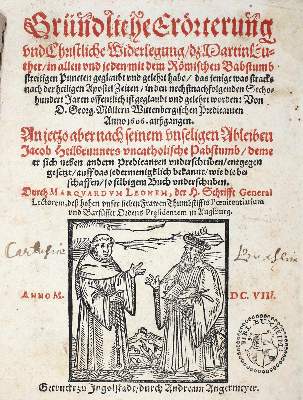 Gründliche Erörterung
vnd Christliche Widerlegung / dz Martin Lu-
ther / in allen vnd jeden mit dem Römischen Babstumb
streitigen Puncten geglaubt vnd gelehrt habe / das jenige was stracks
nach der heiligen Apostel Zeiten / in den nechstnachfolgenden Sechs-
hundert Jaren offentlich ist geglaubt vnd gelehrt worden: Von
D. Georg. Müllern Wittenbergischen Predicanten
Anno 1606. außgangen.
An jetzo aber nach seinem vnseligen Ableiben
Jacob Heilbrunners vncatholische Pabstumb / deme
er sich neben andern Predicanten vnderschriben / entgegen
gesetzt / auff das jedermenigklich bekannt / wie die be-
schaffen / so selbigem Buch vnderschriben.
Durch MARQVARDVM LEONEM, der H. Schrifft General
Lectorem, deß hohen vnser lieben Frawen Thumbstiffts Pœnitentiarium
vnd Barfüsser Ordens Præsidenten in Augspurg.
ANNO M.
DC. VIII.
Getruckt zu Ingolstadt / durch Andream Angermeyer.